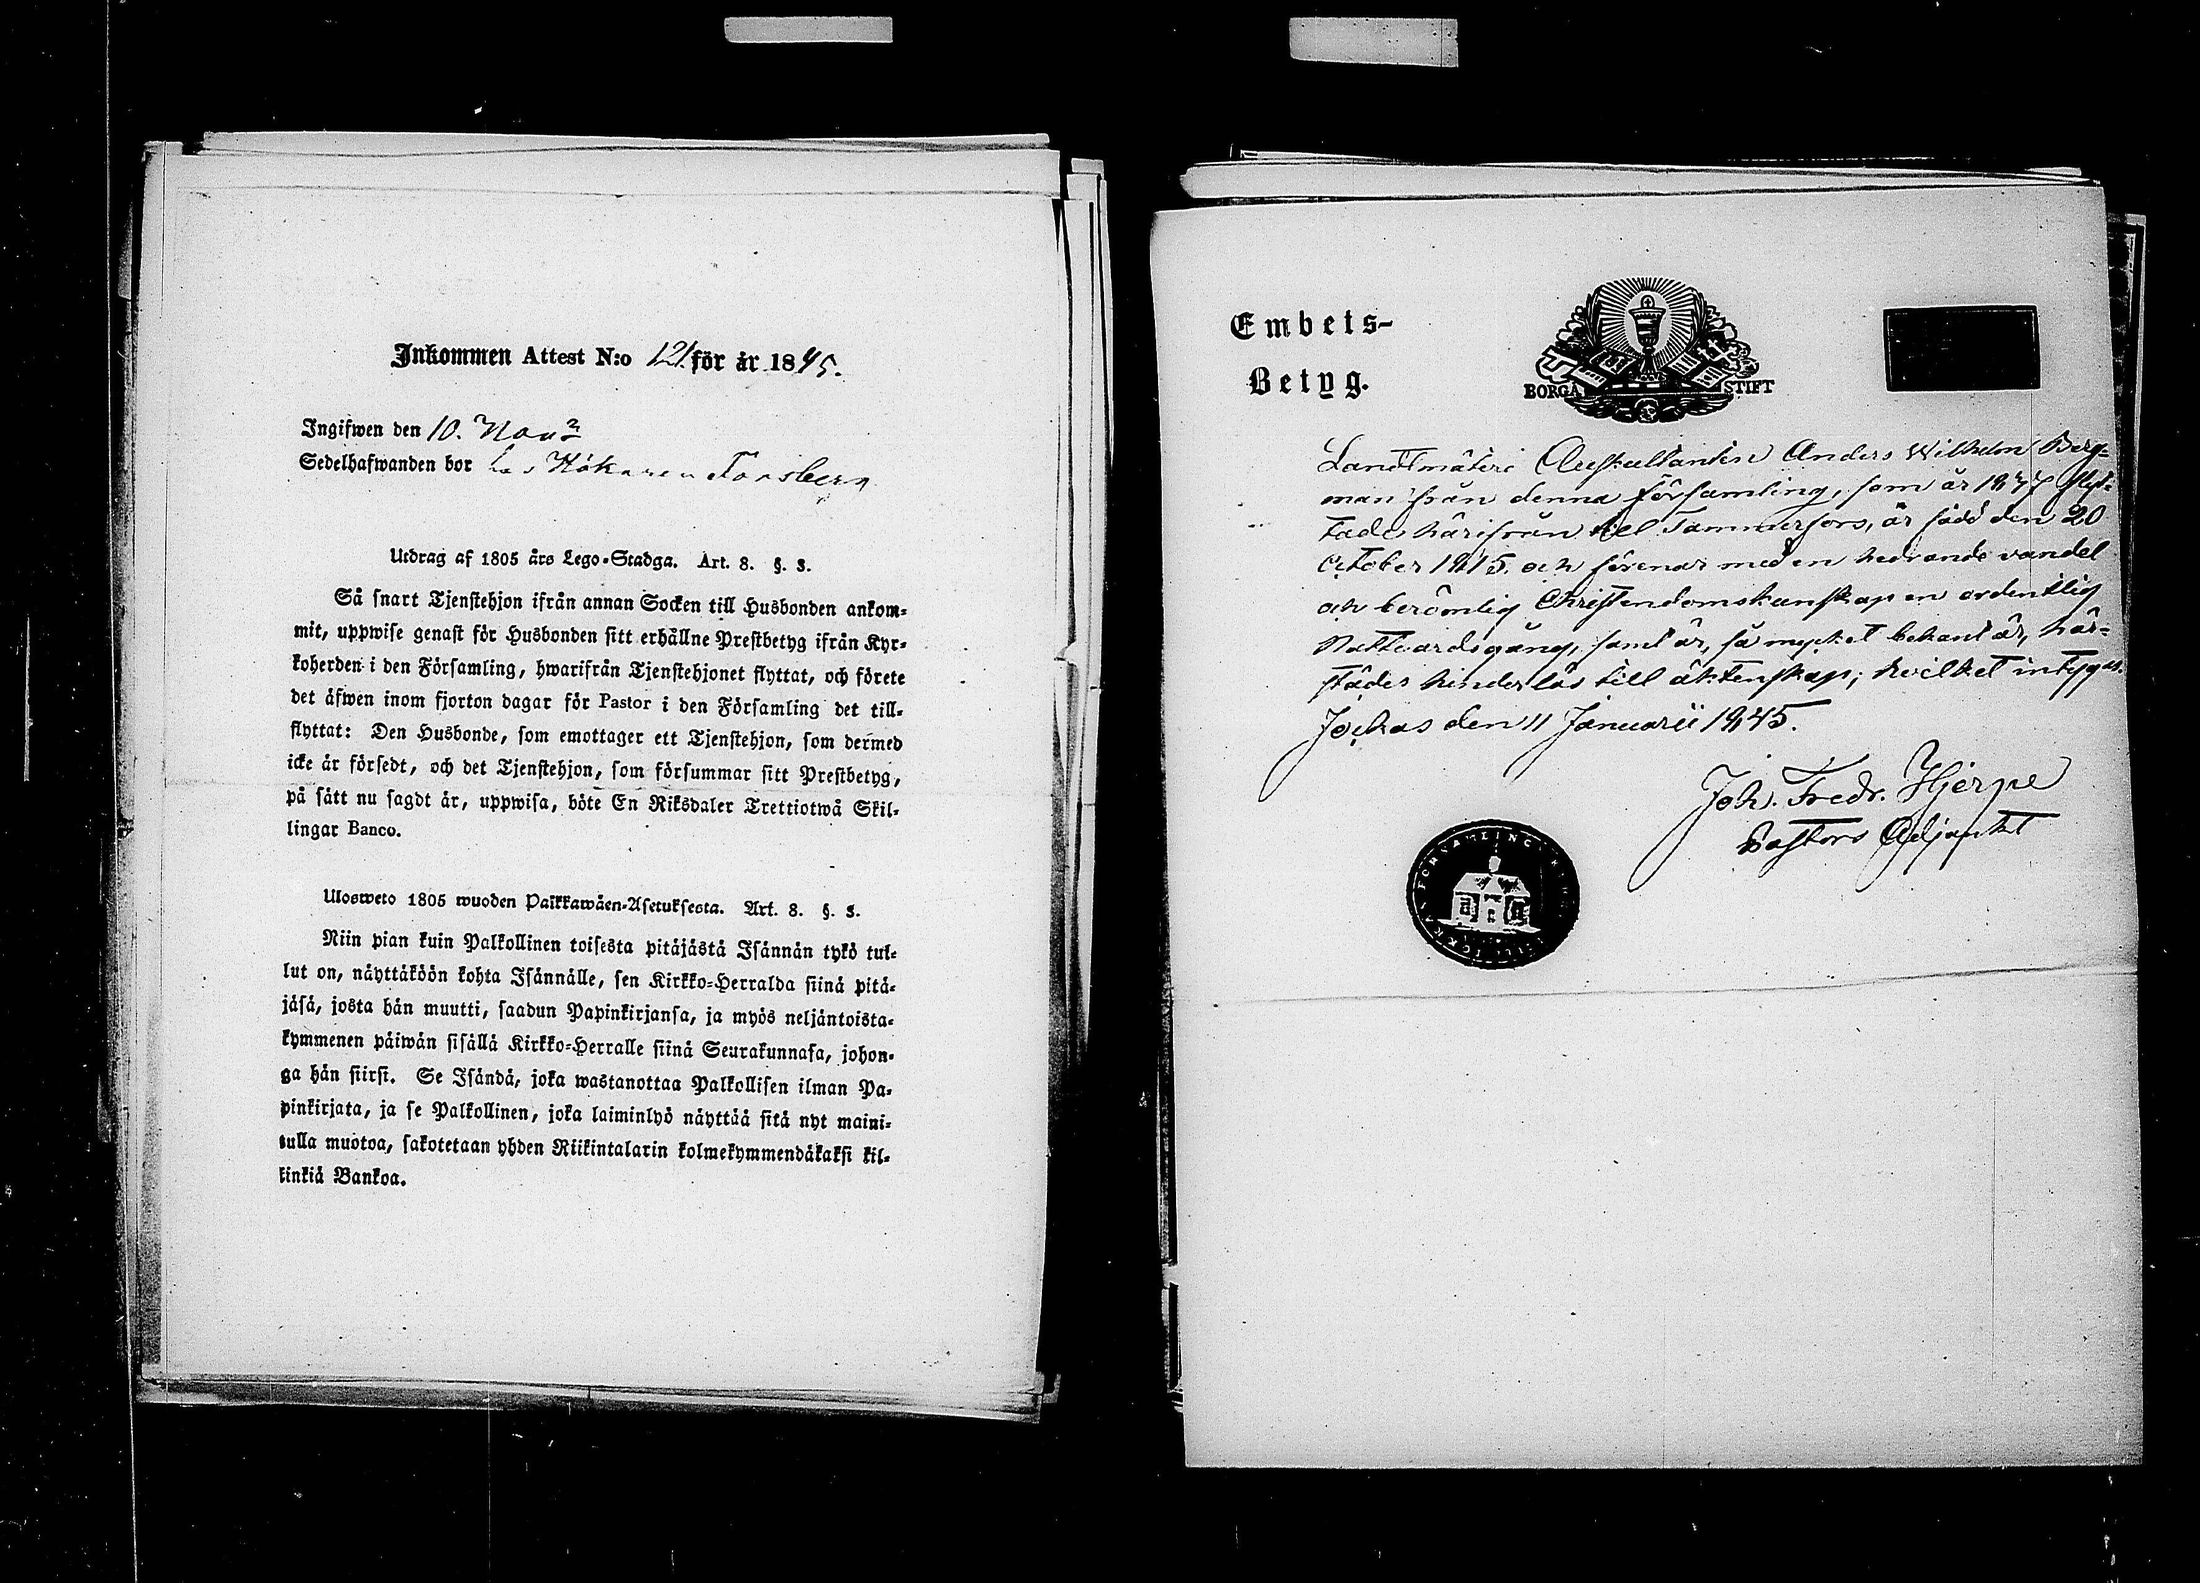 Inkommen Attest N:o 121. för år 1845.
Ingifwen den 10. Nov
Sedelhafwanden bor hos Hökaren Forsberg
Utdrag af 1805 års Lego-Stadga. Art. 8. §. 3.
Så snart Tjenstehjon ifrån annan Socken till Husbonden ankom-
mit, uppwise genast för Husbonden sitt erhållne Prestbetyg ifrån Kyr-
koherden i den Församling, hwarifrån Tjenstehjonet flyttat, och förete
det äfwen inom fjorton dagar för Pastor i den Församling det till-
flyttat: Den Husbonde, som emottager ett Tjenstehjon, som dermed
icke är försedt, och det Tjenstehjon, som försummar sitt Prestbetyg,
på sätt nu sagdt är, uppwisa, böte En Riksdaler Trettiotwå Skil-
lingar Banco.
Ulosweto 1805 wuoden Palkkawäen-Asetuksesta. Art. 8. §. 3.
Niin pian kuin Palkollinen toisesta pitäjästä Isännän tykö tul-
lut on, näyttäköön kohta Isännälle, sen Kirkko-Herralda siinä pitä-
jäsä, josta hän muutti, saadun Papinkirjansa, ja myös neljäntoista-
kymmenen päiwän sisällä Kirkko-Herralle siinä Seurakunnasa, johon-
ga hän siirsi. Se Isändä, joka wastanottaa Palkollisen ilman Pa-
pinkirjata, ja se Palkollinen, joka laiminlyö näyttää sitä nyt maini-
tulla muotoa, sakotetaan yhden Riikintalarin kolmekymmendäkaksi kil-
linkiä Bankoa.
Embets-
Betyg.
BORGÅ STIFT
Landtmäteri Auskultanten Anders Wilhelm Berg-
man från denna församling, som år 1837 flyt-
tade härifrån till Tammerfors, är född den 20
October 1815. och förenar med en hedrande vandel
och berömlig Christendomskunskap en ordentlig
Nattvardsgång, samt är, så mycket bekant är, här-
städes hinderlös till äktenskap; hvilket intygas.
Jockas den 11 Januarii 1845.
Joh. Fredr. Hjerpe
Pastors Adjunkt